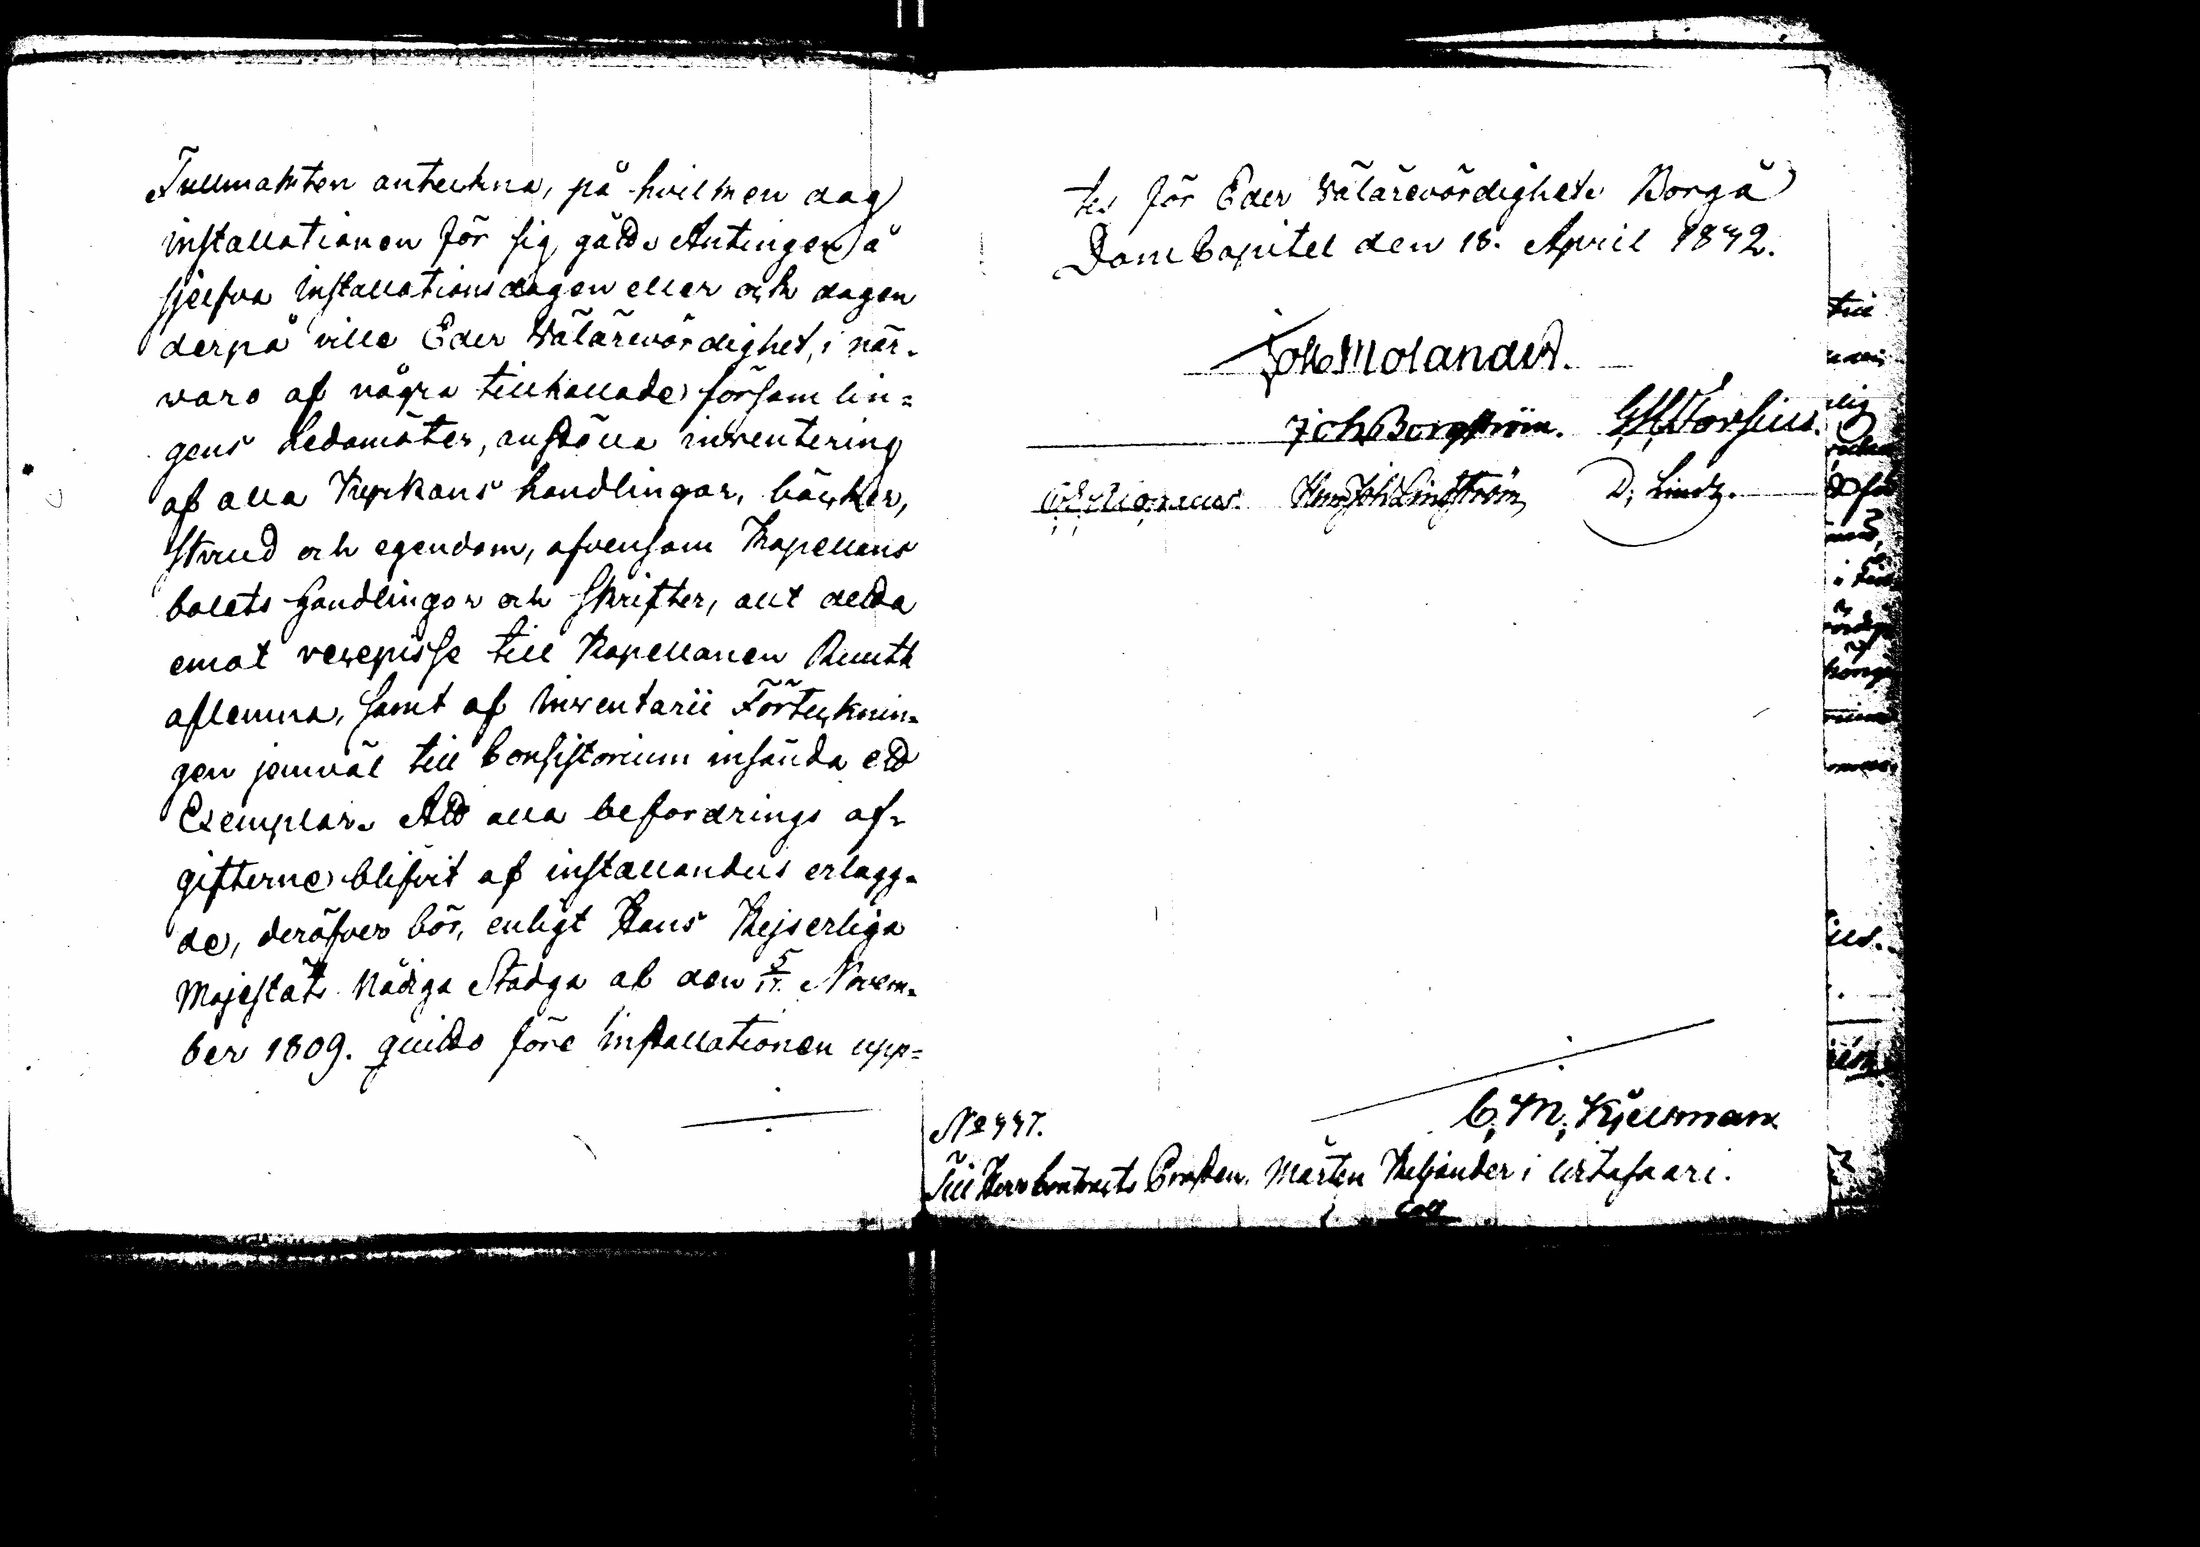 Fullmakten anteckna, på hvilken dag
installationen för sig gådt. Antingen å
sjelfva installationsdagen eller ock dagen
derpå ville Eder Wälärewördighet, i när-
varo af några tillkallade församlin=
gens Ledamöter, anställa inventering
af alla Kyrkans handlingar, böcker,
skrud och egendom, äfvensom Kapellans
bolets Handlingar och skrifter, allt detta
emot recepisse till Kapellanen Ruuth
aflemna, samt af Inventarii Förtecknin-
gen jemväl till Consistorium insända ett
Exemplar. Att alla befordrings af-
gifterne blifvit af installandus erlagg-
de, deröfver bör, enligt Hans Kejserliga
Majestäts Nådiga Stadga af den 5/17 Novem-
ber 1809. quitto före installationen upp=
tes för Eder Wälärewördighet. Borgå
DomCapitel den 18. April 1842.
Joh. Molander.
Joh. Borgström.
Joh. Lindström
No 447.
C. M. Kjellman
Till Herr Contracts Prosten Mårten Heljander i Urtasaari.